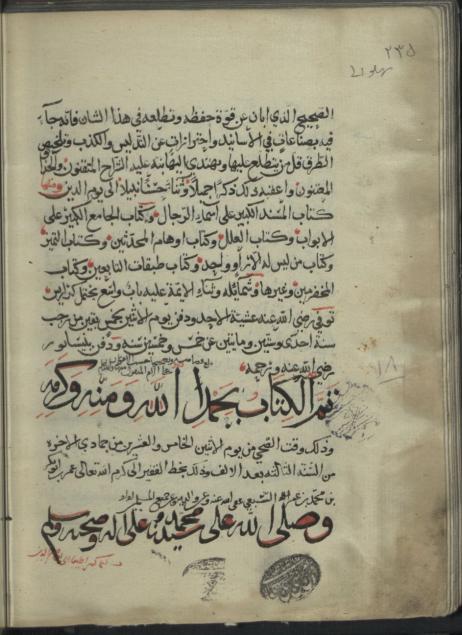 ٢٣٥
الصحيح الذي ابان عن قوة حفظه وتطلعه في هذا الشان فانه جاء
فيه بصناعات في الأسانيد واحترازات عن التدليس والكذب وتلخيص
الطرق قل من يتطلع عليها ويهتدي اليها
وذكره ذكرا جميلا الى يوم الدين ومنها
كتاب المسند الكبير على اسماء الرجال وكتاب الجامع الكبير على
الابواب وكتاب العلل وكتاب اوهام المحدثين وكتاب التمييز
وكتاب من ليس له الا راو واحد وكتاب طبقات التابعين وكتاب
المخضرمين وغيرها وشمائله وثناء الائمة عليه باب واسع يحتمل كراريس
توفي رضي الله عنه عشية الاحد ودفن يوم الاثنين لخمس بقين من رجب
سنة احدى وستين ومايتين عن خمس وخمسين سنة ودفن بنيسابور
رضي الله عنه ورحمه
تم الكتاب بحمد الله ومنه وكرمه
وذلك وقت الضحى من يوم الاثنين الخامس والعشرين من جمادى الاخرة
من السنة الثالثة بعد الالف وذلك بخط الفقير الى كرم الله تعالى عمر
بن محمد بن عفى الله عنه وعن والديه وعن جميع المسلمين
وصلى الله على محمد وعلى آله وصحبه وسلم